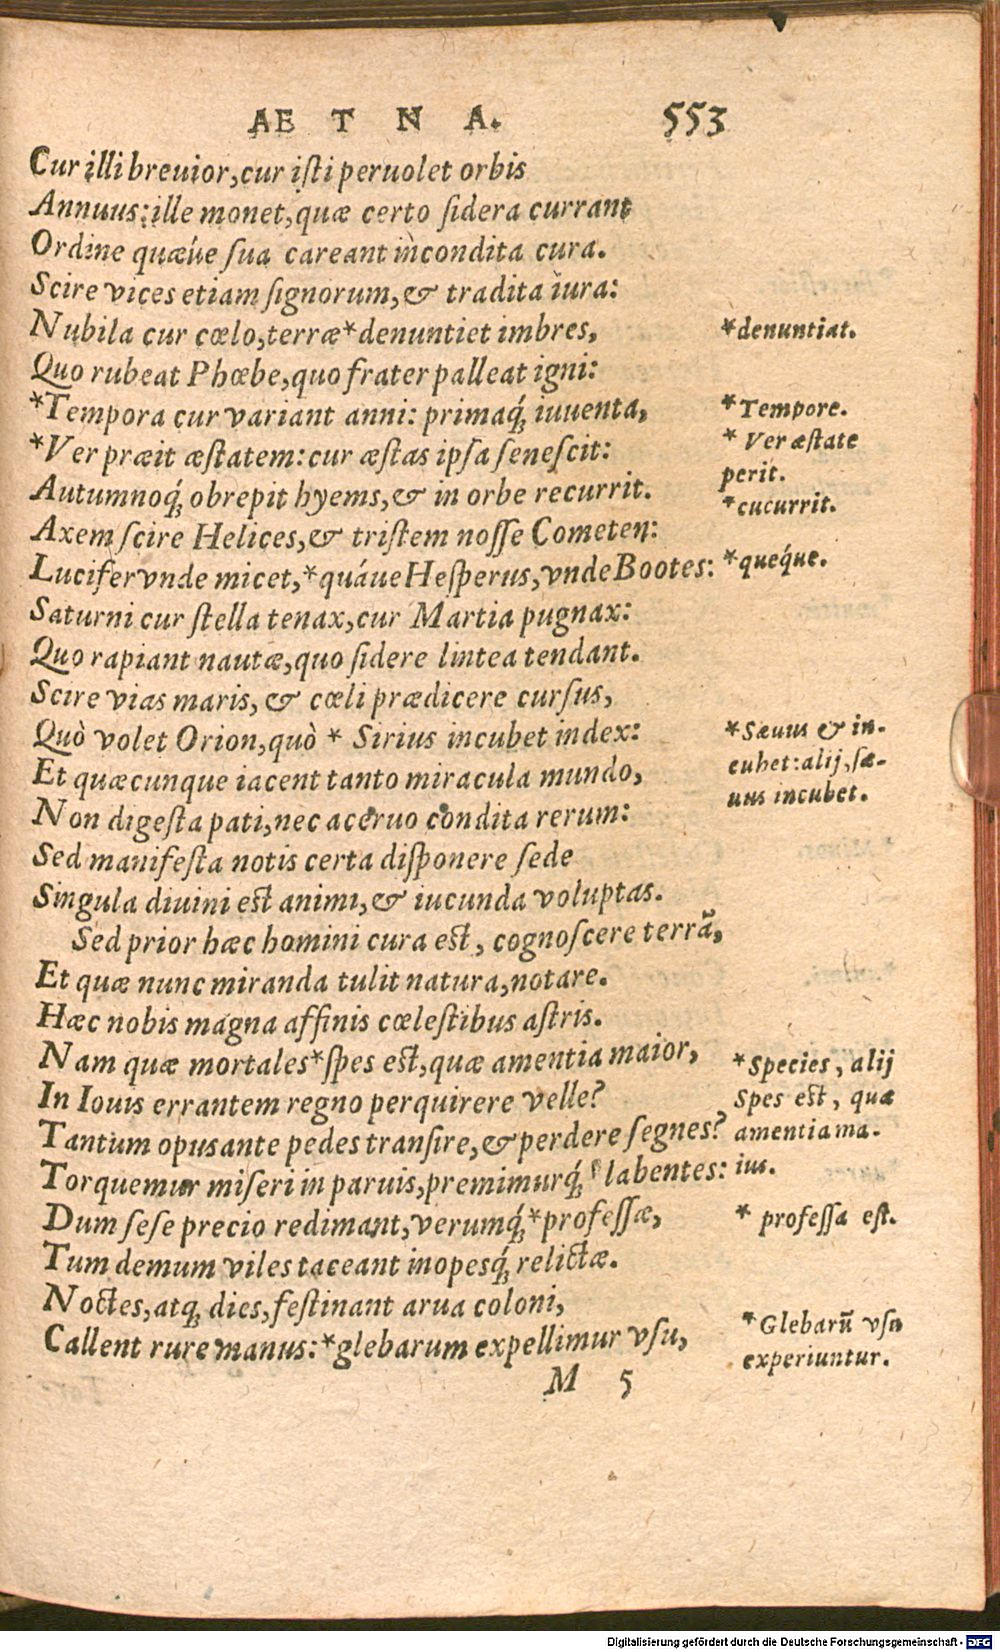 AETNA. 553
Cur illi breuior, cur iſti peruolet orbis
Annuus: ille monet, quæ certo ſidera currant
Ordine quæúe ſua careant incondita cura.
Scire vices etiam ſignorum, & tradita iura:
Nubila cur cœlo, terræ *denuntiet imbres,
*denuntiat.
Quo rubeat Phœbe, quo frater palleat igni:
*Tempora cur variant anni: primaq́; iuuenta,
*Tempore.
*Ver præit æſtatem: cur æſtas ipſa ſeneſcit:
* Ver æſtate
perit.
Autumnoq́; obrepit hyems, & in orbe recurrit.
*cucurrit.
Axem ſcire Helices, & triſtem noſſe Cometen:
Lucifer vnde micet, *quáue Heſperus, vnde Bootes:
*queq́ue.
Saturni cur ſtella tenax, cur Martia pugnax:
Quo rapiant nautæ, quo ſidere lintea tendant.
Scire vias maris, & cœli prædicere curſus,
Quò volet Orion, quò * Sirius incubet index:
*Sæuus & in-
cubet: alij, ſæ-
uus incubet.
Et quæcunque iacent tanto miracula mundo,
Non digeſta pati, nec aceruo condita rerum:
Sed manifeſta notis certa diſponere ſede
Singula diuini eſt animi, & iucunda voluptas.
Sed prior hæc homini cura eſt, cognoſcere terrã,
Et quæ nunc miranda tulit natura, notare.
Hæc nobis magna affinis cœleſtibus aſtris.
Nam quæ mortales *ſpes eſt, quæ amentia maior,
*Species, alij
Spes eſt, quæ
amentia ma-
ius.
In Iouis errantem regno perquirere velle?
Tantum opus ante pedes tranſire, & perdere ſegnes?
Torquemur miſeri in paruis, premimurq́; labentes:
Dum ſeſe precio redimant, verumq́; *profeſſæ,
* profeſſa eſt.
Tum demum viles taceant inopesq́; relictæ.
Noctes, atq; dies, feſtinant arua coloni,
Callent rure manus: *glebarum expellimur vſu,
*Glebarũ vſu
experiuntur.
M 5
Digitalisierung gefördert durch die Deutsche Forschungsgemeinschaft - DFG